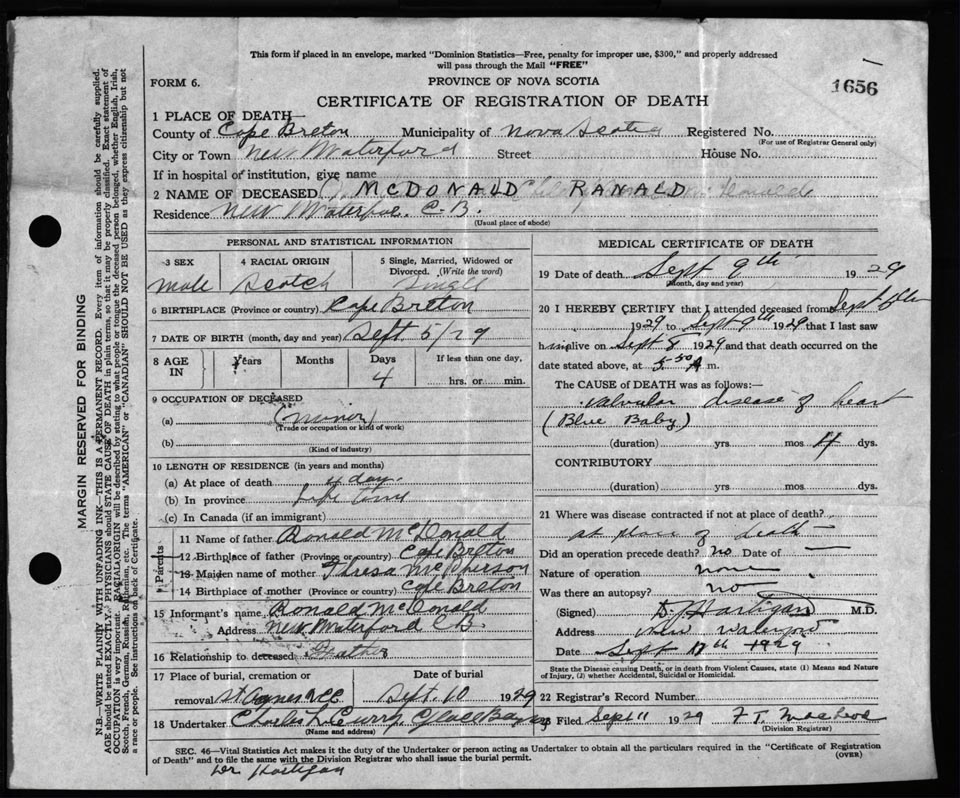 This form if placed in an envelope, marked "Dominion Statistics—Free, penalty for improper use, $300," and properly addressed
will pass through the Mail "FREE"
FORM 6.
PROVINCE OF NOVA SCOTIA
1656
CERTIFICATE OF REGISTRATION OF DEATH
1 PLACE OF DEATH—
County of Cape Breton Municipality of Nova Scotia Registered No.
(For use of Registrar General only)
City or Town New Waterford Street House No.
If in hospital of institution, give name
2 NAME OF DECEASED MCDONALD RANALD
Residence New C.B.
(Usual place of abode)
PERSONAL AND STATISTICAL INFORMATION
3 SEX 4 RACIAL ORIGIN 5 Single, Married, Widowed or Divorced. (Write the word)
male Scotch Single
6 BIRTHPLACE (Province or country) Cape Breton
7 DATE OF BIRTH (month, day and year) Sept 5/29
8 AGE IN Years Months Days If less than one day,
4 hrs. or min.
9 OCCUPATION OF DECEASED
(a) (Minor)
(Trade or occupation or kind of work)
(b)
(Kind of industry)
10 LENGTH OF RESIDENCE (in years and months)
(a) At place of death 4 day.
(b) In province life time
(c) In Canada (if an immigrant)
Parents
11 Name of father Ronald McDonald
12 Birthplace of father (Province or country) Cape Breton
13 Maiden name of mother Thresa McPherson
14 Birthplace of mother (Province or country) Cape Breton
15 Informant's name, Ronald McDonald
Address New Waterford C B.
16 Relationship to deceased Father
17 Place of burial, cremation or removal St Agnes Date of burial Sept. 10 1929
18 Undertaker Charles Curry Glace Bay
(Name and address)
MEDICAL CERTIFICATE OF DEATH
19 Date of death Sept 9th 1929
(Month, day and year)
20 I HEREBY CERTIFY that I attended deceased from Sept
1929 to Sept 9th 1929 that I last saw
him alive on Sept 8 1929 and that death occurred on the
date stated above, at 5.50 A m.
The CAUSE of DEATH was as follows:—
Valvular disease of heart
(Blue Baby)
(duration) yrs mos 4 dys.
CONTRIBUTORY
(duration) yrs. mos. dys.
21 Where was disease contracted if not at place of death?
at place of death —
Did an operation precede death? no Date of —
Nature of operation none
Was there an autopsy? no
(Signed) Hartigan M.D.
Address New Waterford
Date Sept 1929
State the Disease causing Death, or in death from Violent Causes, state (1) Means and Nature
of Injury, (2) whether Accidental, Suicidal or Homicidal.
22 Registrar's Record Number
23 Filed Sept 11 1929 F. T.
(Division Registrar)
SEC. 46—Vital Statistics Act makes it the duty of the Undertaker or person acting as Undertaker to obtain all the particulars required in the "Certificate of Registration
of Death" and to file the same with the Division Registrar who shall issue the burial permit.
(OVER)
Dr Hartigan
MARGIN RESERVED FOR BINDING
N.B.—WRITE PLAINLY WITH UNFADING INK—THIS IS A PERMANENT RECORD. Every item of information should be carefully supplied.
AGE should be stated EXACTLY. PHYSICIANS should STATE CAUSE OF DEATH in plain terms, so that it may be properly classified. Exact statement of
OCCUPATION is very important. RACIAL ORIGIN will be described by stating to what people or tongue the deceased person belonged, whether English, Irish,
Scotch, French, German, Russian, Ruthenian, etc. The terms "AMERICAN" or "CANADIAN" SHOULD NOT BE USED as they express citizenship but not
a race or people. See instructions on back of Certificate.